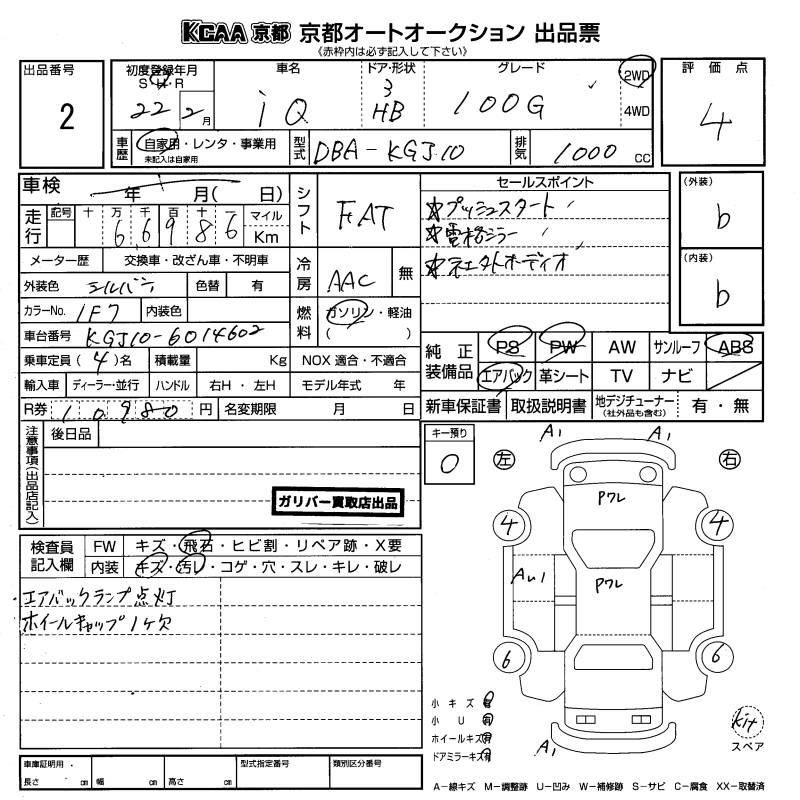 KCAA 京都 京都オートオークション 出品票
《赤枠内は必ず記入して下さい》
出品番号 2
初度登録年月 S・H・R 22 2月
車名 iQ
ドア・形状 3 HB
グレード 100G
2WD 4WD
評価点 4
車歴 自家用・レンタ・事業用 未記入は自家用
型式 DBA-KGJ10
排気 1000 CC
車検 年 月( 日)
走行 記号 十 万 千 百 十 一 マイル Km
6 6 9 8 6
シフト FAT
セールスポイント
☆プッシュスタート
☆電格ミラー
(外装) b
(内装) b
メーター歴 交換車・改ざん車・不明車
冷房 AAC 無
外装色 シルバー 色替 有
カラーNo. 1F7 内装色
燃料 ガソリン・軽油 ( )
車台番号 KGJ10-6014602
乗車定員 (4)名 積載量 Kg NOX 適合・不適合
輸入車 ディーラー・並行 ハンドル 右H・左H モデル年式 年
R券 10980円 名変期限 月 日
純正装備品 PS PW AW サンルーフ ABS
エアバック 革シート TV ナビ
新車保証書 取扱説明書 地デジチューナー (社外品も含む) 有・無
注意事項(出品店記入) 後日品
ガリバー買取店出品
キー預り 0
A1 A1
左 右
Pワレ
4 4
AU1
Pワレ
6 6
A1
検査員記入欄 FW キズ・飛石・ヒビ割・リペア跡・X要
内装 キズ・汚レ・コゲ・穴・スレ・キレ・破レ
エアバックランプ点灯
ホイールキャップ1ケ欠
小キズ 有
小U 有
ホイールキズ 有
ドアミラーキズ 有
kit
スペア
車庫証明用・ 長さ cm 幅 cm 高さ cm
型式指定番号
類別区分番号
A-線キズ M-調整跡 U-凹み W-補修跡 S-サビ C-腐食 XX-取替済